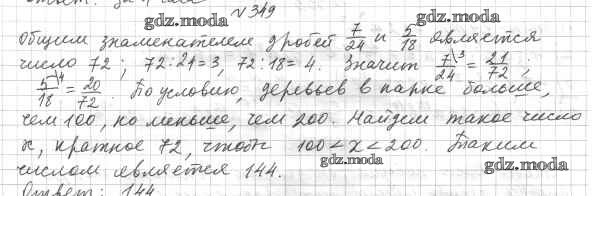 gdz.moda № 349 gdz.moda
Общим знаменателем дробей 7/24 и 5/18 является
число 72; 72:24=3, 72:18=4. Значит 7\3/24 = 21/72;
5\4/18 = 20/72. По условию, деревьев в парке больше,
чем 100, но меньше, чем 200. Найдем такое число
x, кратное 72, чтобы 100<x<200. Таким
gdz.moda gdz.moda
числом является 144.
Ответ: 144